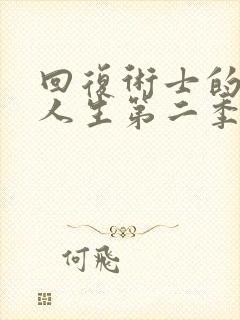 回復術士的
人生第二季
何飛